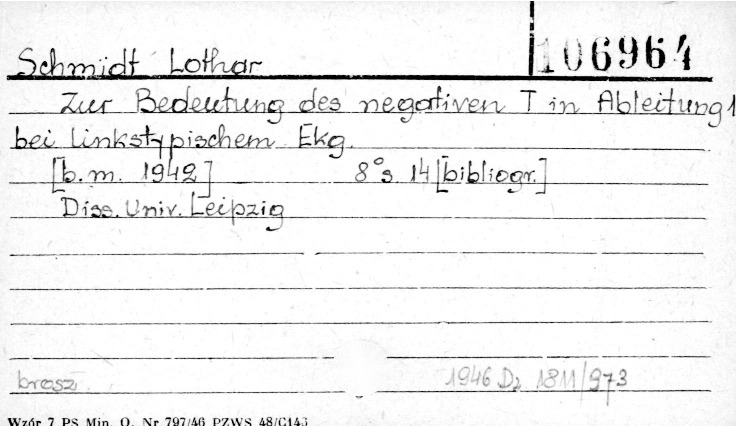 106964
Schmidt Lothar
Zur Bedeutung des negativen T in Ableitung 1
bei linkstypischem Ekg.
[b.m. 1942] 8°s. 14 [bibliogr.]
Diss. Univ. Leipzig
brosz. 1946 Dz 1811/973
Wzór 7 PS Min. O. Nr 797/46 PZWS 48/C143